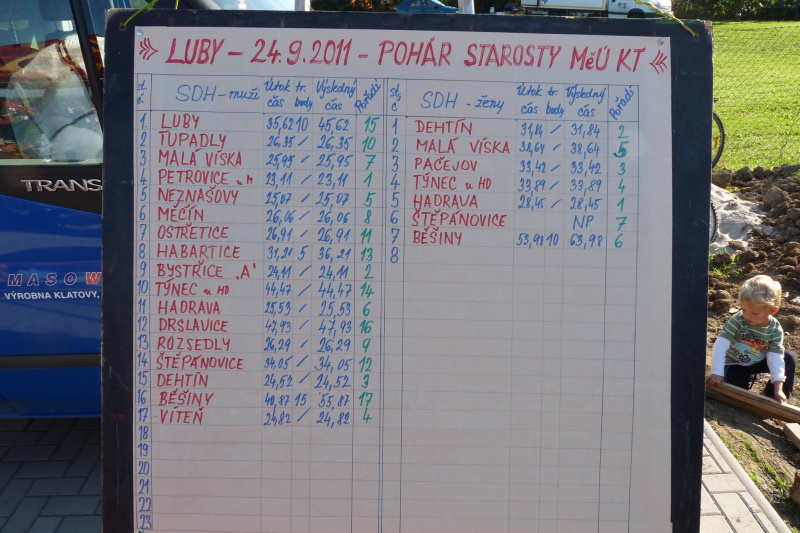 LUBY - 24.9.2011 - POHÁR STAROSTY MěÚ KT
st. č. SDH - muži Útok čas tr. body Výsledný čas Pořadí
1 LUBY 35,62 10 45,62 15
2 ŤUPADLY 26,35 / 26,35 10
3 MALÁ VÍSKA 25,95 / 25,95 7
4 PETROVICE u M 23,11 / 23,11 1
5 NEZNAŠOVY 25,07 / 25,07 5
6 MĚČÍN 26,06 / 26,06 8
7 OSTŘETICE 26,91 / 26,91 11
8 HABARTICE 31,21 5 36,21 13
9 BYSTŘICE „A" 24,11 / 24,11 2
10 TÝNEC u HD 44,47 / 44,47 14
11 HADRAVA 25,53 / 25,53 6
12 DRSLAVICE 47,93 / 47,93 16
13 ROZSEDLY 26,29 / 26,29 9
14 ŠTĚPÁNOVICE 34,05 / 34,05 12
15 DEHTÍN 24,52 / 24,52 3
16 BĚŠINY 40,87 15 55,87 17
17 VÍTEŇ 24,82 / 24,82 4
18
19
20
21
22
23
st. č. SDH - ženy Útok čas tr. body Výsledný čas Pořadí
1 DEHTÍN 31,84 / 31,84 2
2 MALÁ VÍSKA 38,64 / 38,64 5
3 PAČEJOV 33,42 / 33,42 3
4 TÝNEC u HD 33,89 / 33,89 4
5 HADRAVA 28,45 / 28,45 1
6 ŠTĚPÁNOVICE NP 7
7 BĚŠINY 53,98 10 63,98 6
8
TRANS
MASOW
VÝROBNA KLATOVY,